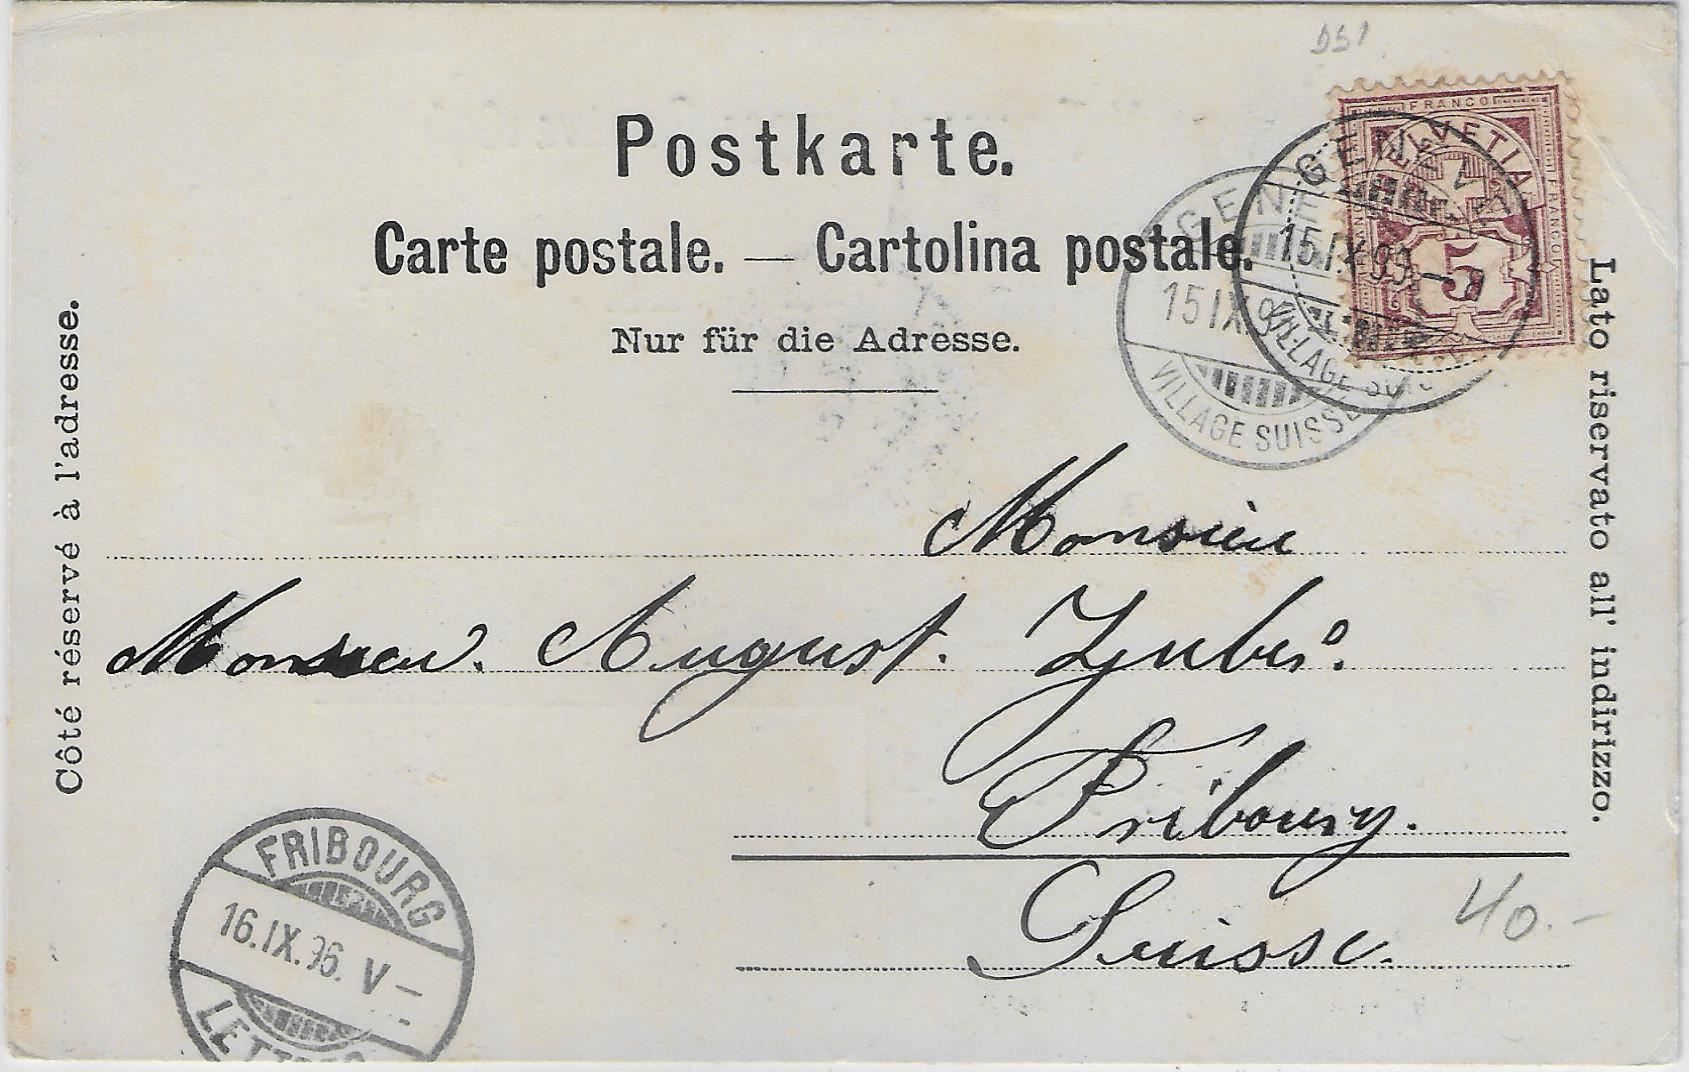 DS1
Postkarte.
Carte postale. — Cartolina postale.
Nur für die Adresse.
Côté réservé à l'adresse.
Lato riservato all' indirizzo.
FRANCO
HELVETIA
FRANCO
5
GENÈVE
15 IX 96
VILLAGE SUISSE
GENÈVE
15 IX 96
VILLAGE SUISSE
Monsieu
Monsieu. August.
Fribourg.
Suisse.
40.-
FRIBOURG
16.IX.96. V–